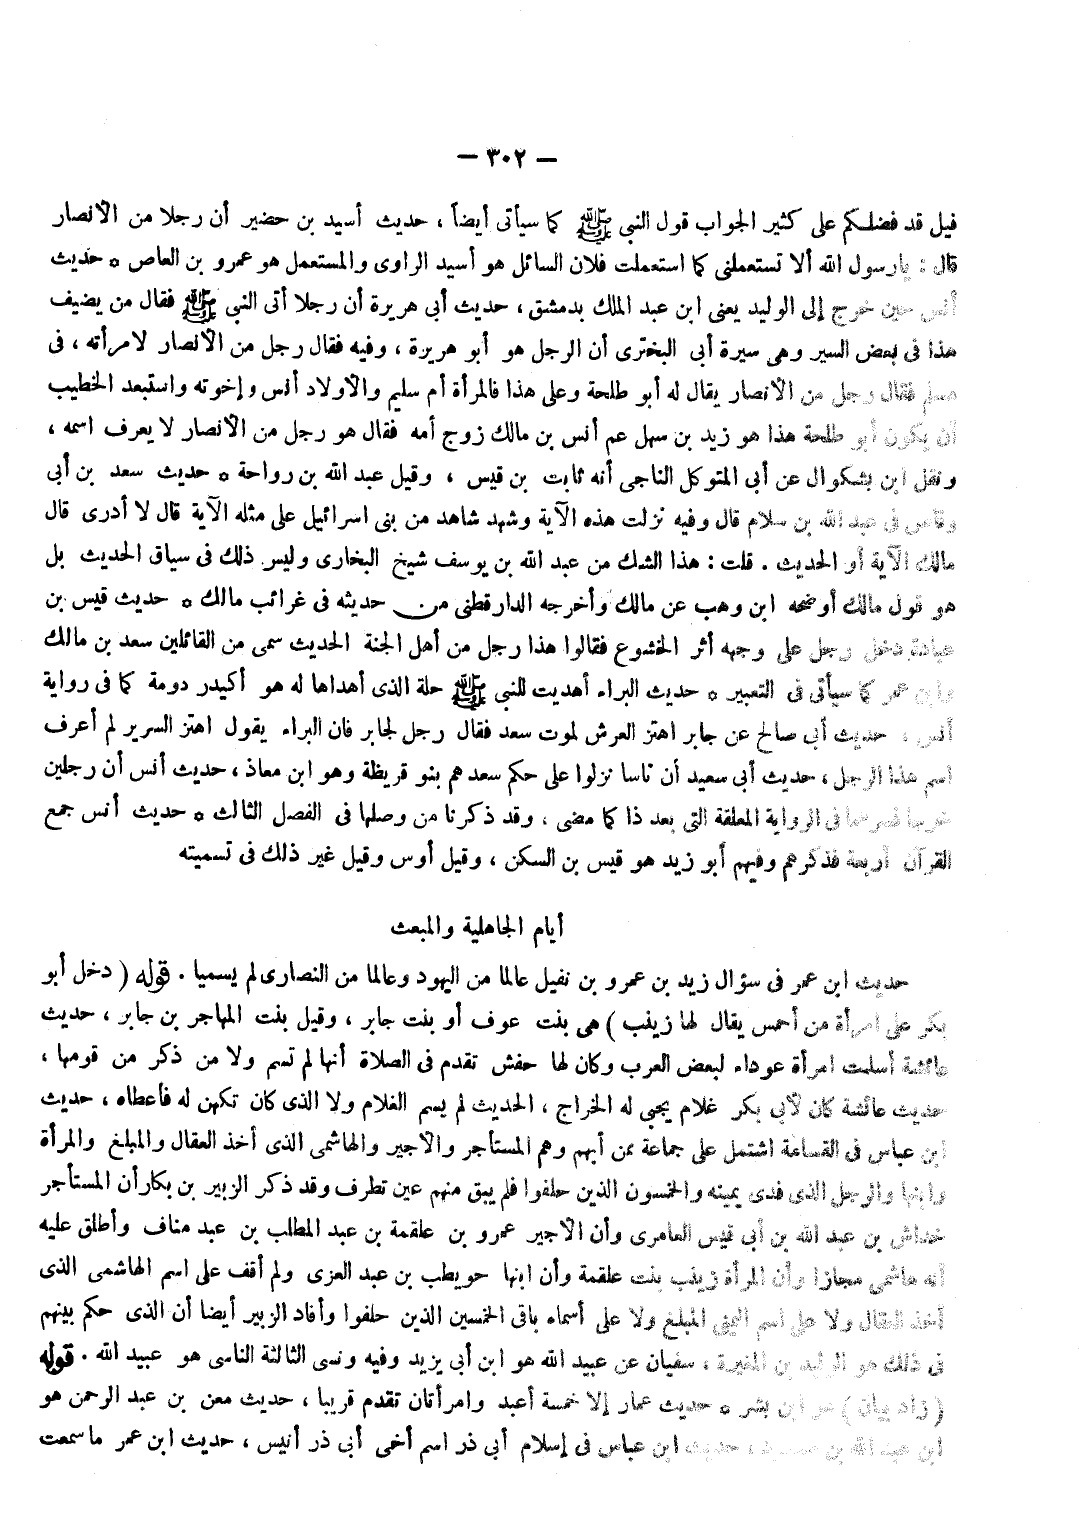 — ٣٠٢ —
فيل قد فضلكم على كثير الجواب قول النبى ﷺ كما سيأتى أيضاً ، حديث أسيد بن حضير أن رجلا من الأنصار
قال : يارسول الله ألا تستعملنى كما استعملت فلان السائل هو أسيد الراوى والمستعمل هو عمرو بن العاص * حديث
أنس حين خرج إلى الوليد يعنى ابن عبد الملك بدمشق ، حديث أبى هريرة أن رجلا أتى النبى ﷺ فقال من يضيف
هذا فى بعض السير وهى سيرة أبى البخترى أن الرجل هو أبو هريرة ، وفيه فقال رجل من الأنصار لامرأته ، فى
مسلم فقال رجل من الأنصار يقال له أبو طلحة وعلى هذا فالمرأة أم سليم والأولاد أنس وإخوته واستبعد الخطيب
أن يكون أبو طلحة هذا هو زيد بن سهل عم أنس بن مالك زوج أمه فقال هو رجل من الأنصار لا يعرف اسمه ،
ونقل ابن بشكوال عن أبى المتوكل الناجى أنه ثابت بن قيس ، وقيل عبد الله بن رواحة * حديث سعد بن أبى
وقاص فى عبد الله بن سلام قال وفيه نزلت هذه الآية وشهد شاهد من بنى اسرائيل على مثله الآية قال لا أدرى قال
مالك الآية أو الحديث . قلت : هذا الشك من عبد الله بن يوسف شيخ البخارى وليس ذلك فى سياق الحديث بل
هو قول مالك أوضحه ابن وهب عن مالك وأخرجه الدارقطنى من حديثه فى غرائب مالك * حديث قيس بن
عبادة دخل رجل على وجهه أثر الخشوع فقالوا هذا رجل من أهل الجنة الحديث سمى من القائلين سعد بن مالك
وابن عمر كما سيأتى فى التعبير * حديث البراء أهديت للنبى ﷺ حلة الذى أهداها له هو أكيدر دومة كما فى رواية
أنس ، حديث أبى صالح عن جابر اهتز العرش لموت سعد فقال رجل لجابر فان البراء يقول اهتز السرير لم أعرف
اسم هذا الرجل ، حديث أبى سعيد أن ناسا نزلوا على حكم سعد هم بنو قريظة وهو ابن معاذ ، حديث أنس أن رجلين
خرجا فسرهما فى الرواية المعلقة التى بعد ذا كما مضى ، وقد ذكرنا من وصلها فى الفصل الثالث * حديث أنس جمع
القرآن أربعة فذكرهم وفيهم أبو زيد هو قيس بن السكن ، وقيل أوس وقيل غير ذلك فى تسميته
أيام الجاهلية والمبعث
حديث ابن عمر فى سؤال زيد بن عمرو بن نفيل عالما من اليهود وعالما من النصارى لم يسميا . قوله ( دخل أبو
بكر على امرأة من أحمس يقال لها زينب ) هى بنت عوف أو بنت جابر ، وقيل بنت المهاجر بن جابر ، حديث
عائشة أسلمت امرأة عوداء لبعض العرب وكان لها حفش تقدم فى الصلاة أنها لم تسم ولا من ذكر من قومها ،
حديث عائشة كان لأبى بكر غلام يجبى له الخراج ، الحديث لم يسم الغلام ولا الذى كان تكهن له فأعطاه ، حديث
ابن عباس فى القسامة اشتمل على جماعة ممن أبهم وهم المستأجر والأجير والهاشمى الذى أخذ العقال والمبلغ والمرأة
وابنها والرجل الذى فدى يمينه والخمسون الذين حلفوا فلم يبق منهم عين تطرف وقد ذكر الزبير بن بكار أن المستأجر
خداش بن عبد الله بن أبى قيس العامرى وأن الأجير عمرو بن علقمة بن عبد المطلب بن عبد مناف وأطلق عليه
أنه هاشمى مجازا وأن المرأة زينب بنت علقمة وأن ابنها حويطب بن عبد العزى ولم أقف على اسم الهاشمى الذى
أخذ العقال ولا على اسم اليمنى المبلغ ولا على أسماء باقى الخمسين الذين حلفوا وأفاد الزبير أيضا أن الذى حكم بينهم
فى ذلك هو الوليد بن المغيرة ، سفيان عن عبيد الله هو ابن أبى يزيد وفيه ونسى الثالثة الناسى هو عبيد الله . قوله
( زاد بيان ) هو ابن بشر * حديث عمار إلا خمسة أعبد وامرأتان تقدم قريبا ، حديث معن بن عبد الرحمن هو
ابن عبد الله بن ، حديث ابن عباس فى إسلام أبى ذر اسم أخى أبى ذر أنيس ، حديث ابن عمر ما سمعت